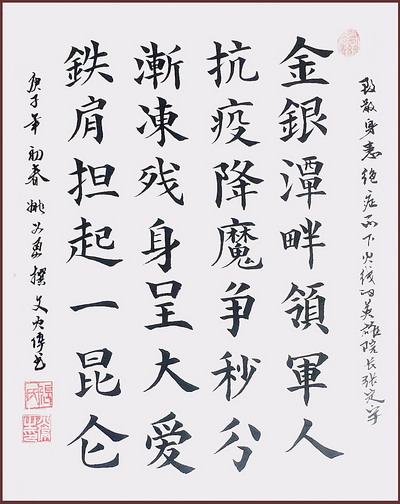 致敬身患绝症不下火线的英雄院长张定宇
金銀潭畔領軍人
抗疫降魔争秒分
漸凍残身呈大爱
鉄肩担起一昆仑
庚子年初春姚撰文书